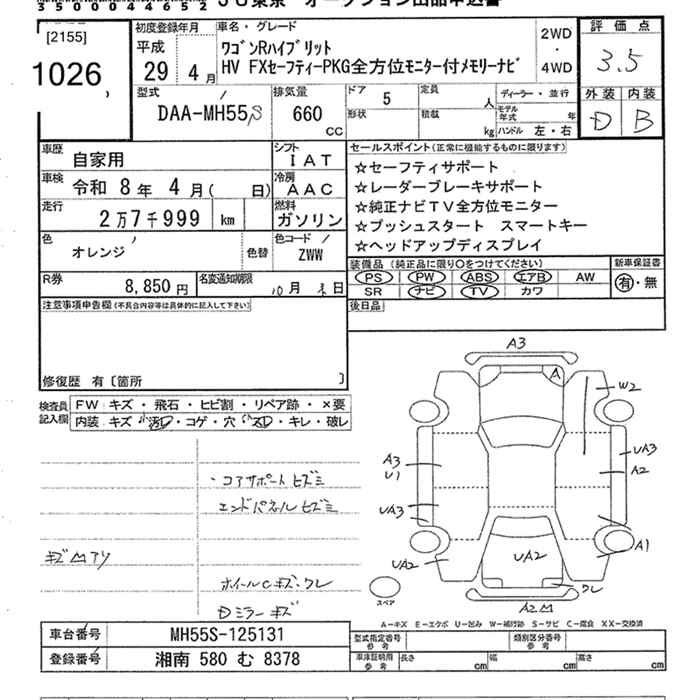 3500044652
JU東京 オークション出品申込書
[2155]
1026
初度登録年月
平成
29年 4月
車名・グレード
ワゴンRハイブリット
HV FXセーフティーPKG全方位モニター付メモリーナビ
2WD
・
4WD
評価点
3.5
外装 内装
D B
型式
DAA-MH55S
排気量
660
CC
ドア 5
形状
定員 人
積載 kg
ディーラー・並行
モデル年式 年
ハンドル 左・右
車歴
自家用
シフト
IAT
車検
令和 8年 4月( 日)
冷房
AAC
走行
2万7千999 km
燃料
ガソリン
色
オレンジ
色替
色コード
ZWW
R券
8,850円
名変通知期限
月 日
セールスポイント(正常に機能するものに限ります)
☆セーフティサポート
☆レーダーブレーキサポート
☆純正ナビTV全方位モニター
☆プッシュスタート スマートキー
☆ヘッドアップディスプレイ
装備品(純正品に限り○をつけてください)
新車保証書
PS PW ABS エアB AW
SR ナビ TV カワ
有・無
後日品
注意事項申告欄(不具合内容等は具体的に記入して下さい)
修復歴 有〔箇所 〕
検査員記入欄
FW キズ・飛石・ヒビ割・リペア跡・×要
内装 キズ・汚れ・コゲ・穴・スレ・キレ・破レ
・コアサポートヒズミ
エンドパネルヒズミ
キズ凹アリ
ホイールCキズ・ワレ
Dミラーキズ
A3
A
W2
UA3
A2
A3
U1
UA3
UA2
UA2
A1
ワレ
A2凹
スペア
A-キズ E-エクボ U-凹み W-補修跡 S-サビ C-腐食 XX-交換済
車台番号 MH55S-125131
登録番号 湘南 580 む 8378
型式指定番号 参考
類別区分番号 参考
車庫証明用 参考
長さ cm 幅 cm 高さ cm